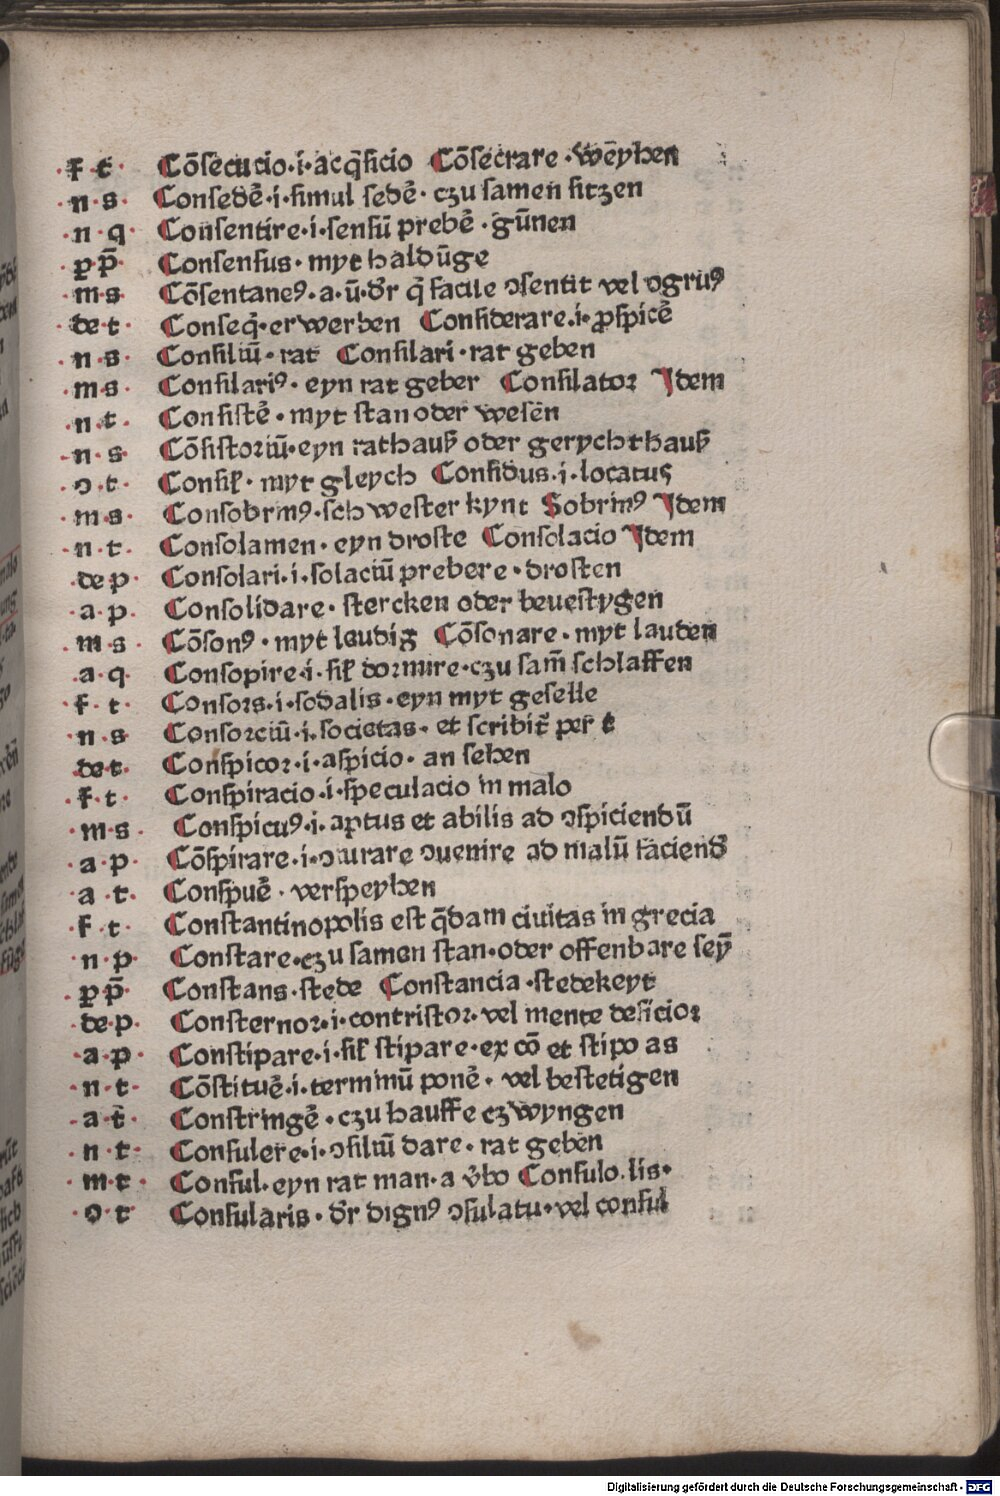 ·f·t· Cōsecucio·i·acq̄sicio Cōsecrare·wēyhen
·n·s· Consedē·i·simul sedē·czu samen sitzen
·n·q· Consentire·i·sensū prebē·gūnen
·p p̄· Consensus·myt haldūge
·m·s· Cōsentaneꝰ·a·ū·dr̄ q̄ facile ↄsentit vel ↄgruꝰ
·de·t· Conseq̄·erwerben Considerare·i·ꝓspicē
·n·s· Consiliū·rat Consilari·rat geben
·m·s· Consilariꝰ·eyn rat geber Consilator Idem
·n·t· Consistē·myt stan oder wesen
·n·s· Cōsistoriū·eyn rathauß oder gerychthauß
·ↄ·t· Consil̄·myt gleych Considus·i·locatus
·m·s· Consobrinꝰ·schwester kynt Sobrinꝰ Idem
·n·t· Consolamen·eyn droste Consolacio Idem
·de p· Consolari·i·solaciū prebere·drosten
·a·p· Consolidare·stercken oder beuestygen
·m·s· Cōsonꝰ·myt laudig Cōsonare·myt lauden
·a·q· Consopire·i·sil̄ dormire·czu sam̄ schlaffen
·f·t· Consors·i·sodalis·eyn myt geselle
·n·s· Consorciū·i·societas·et scribit̄ per t
·de·t· Conspicor·i·aspicio·an sehen
·f·t· Conspiracio·i·speculacio in malo
·m·s· Conspicuꝰ·i·aptus et abilis ad ↄspiciendū
·a·p· Cōspirare·i·ↄiurare ↄuenire ad malū faciend̄
·a·t· Conspuē·verspeyhen
·f·t· Constantinopolis est q̄dam ciuitas in grecia
·n·p· Constare·czu samen stan·oder offenbare seȳ
·p p̄· Constans·stede Constancia·stedekeyt
·de·p· Consternor·i·contristor·vel mente deficior
·a·p· Constipare·i·sil̄ stipare·ex cō et stipo as
·n·t· Cōstituē·i·terminū ponē·vel bestetigen
·a·t· Constringē·czu hauffe czwyngen
·n·t· Consulere·i·ↄsiliū dare·rat geben
·m·t· Consul·eyn rat man·a v̄bo Consulo·lis·
·o·t· Consularis·dr̄ dignꝰ ↄsulatu·vel consul
Digitalisierung gefördert durch die Deutsche Forschungsgemeinschaft - DFG